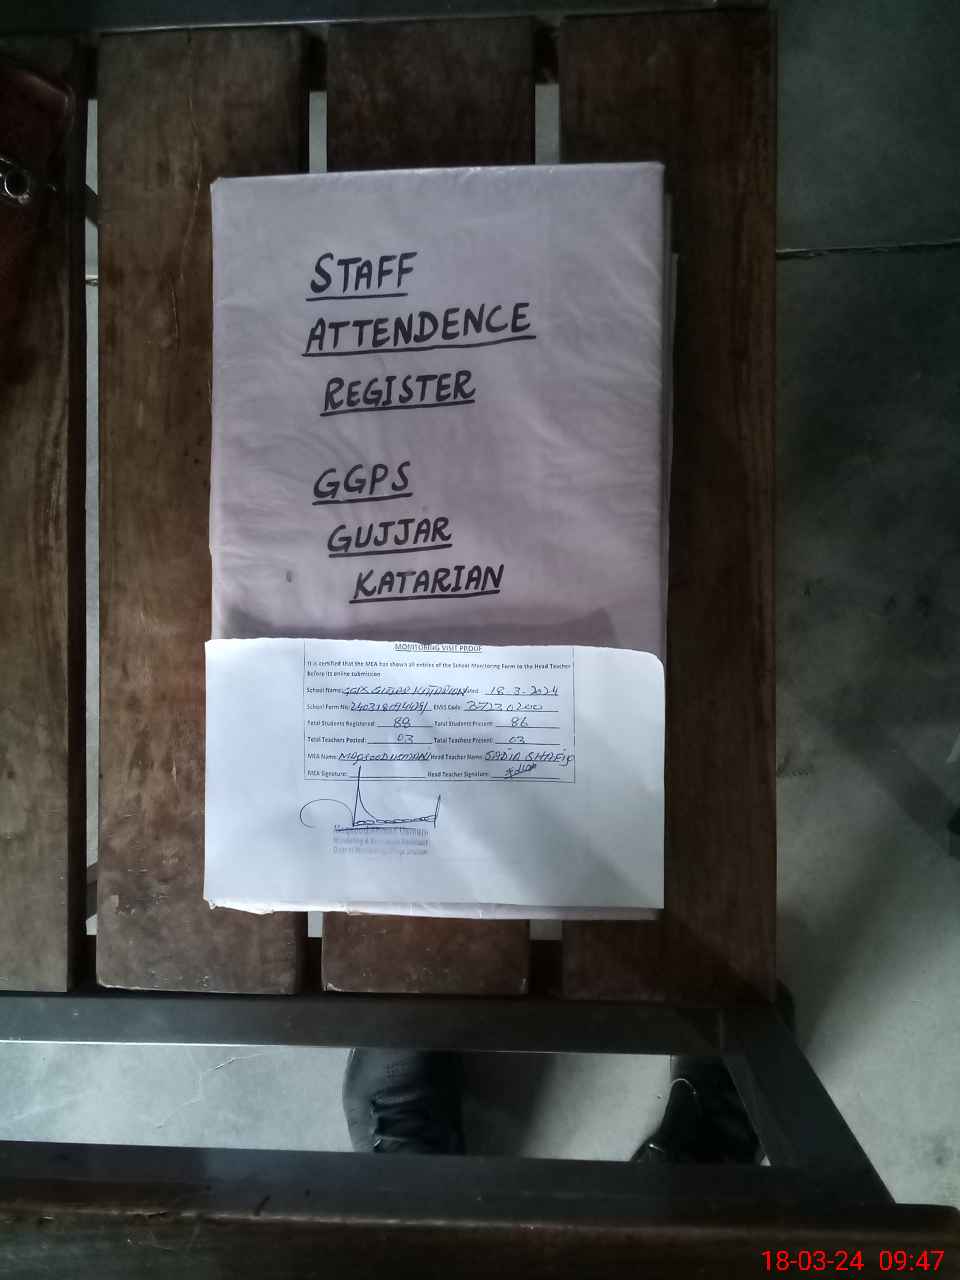 STAFF
ATTENDENCE
REGISTER
GGPS
GUJJAR
KATARIAN
MONITORING VISIT PROOF
It is certified that the MEA has shown all entries of the School Monitoring Form to the Head Teacher
before its online submission
School Name: GGPS GUJJAR KATARIAN Dated: 18-3-2024
School Form No: EMIS Code: 37230200
Total Students Registered: 88 Total Students Present: 86
Total Teachers Posted: 03 Total Teachers Present: 03
MEA Name: Head Teacher Name: SADIA SHAFIQ
MEA Signature: Head Teacher Signature:
Monitoring & Evaluation Assistant
18-03-24 09:47